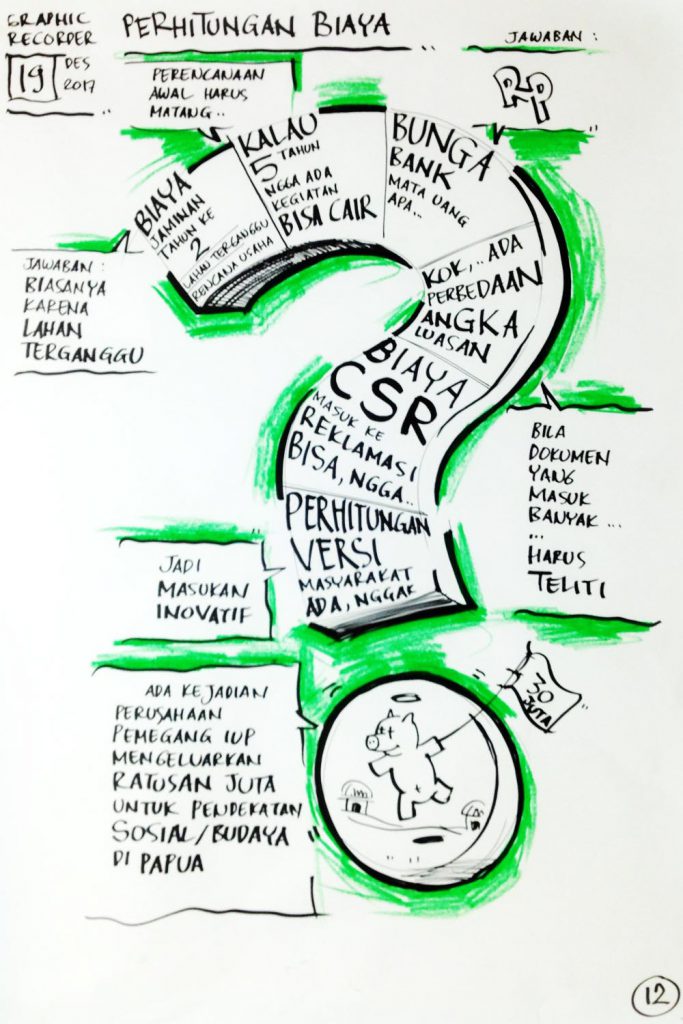 GRAPHIC
RECORDER
19
DES
2017
PERHITUNGAN BIAYA
JAWABAN :
RP
PERENCANAAN
AWAL HARUS
MATANG..
BIAYA
JAMINAN
TAHUN KE
2
LAHAN TERGANGGU
RENCANA USAHA
KALAU
5 TAHUN
NGGA ADA
KEGIATAN
BISA CAIR
BUNGA
BANK
MATA UANG
APA...
KOK,.. ADA
PERBEDAAN
ANGKA
LUASAN
BIAYA
CSR
MASUK KE
REKLAMASI
BISA, NGGA..
PERHITUNGAN
VERSI
MASYARAKAT
ADA, NGGAK
JAWABAN :
BIASANYA
KARENA
LAHAN
TERGANGGU
BILA
DOKUMEN
YANG
MASUK
BANYAK ...
...
HARUS
TELITI
JADI
MASUKAN
INOVATIF
ADA KEJADIAN
PERUSAHAAN
PEMEGANG IUP
MENGELUARKAN
RATUSAN JUTA
UNTUK PENDEKATAN
SOSIAL/BUDAYA
DI PAPUA
30
JUTA
12